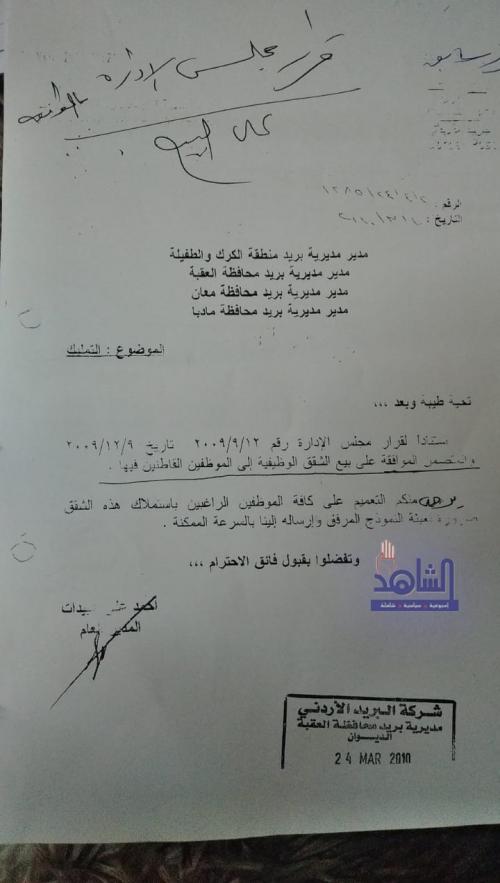 قرار مجلس الادارة بالموافقة
على البيع
الرقم :
التاريخ :
مدير مديرية بريد منطقة الكرك والطفيلة
مدير مديرية بريد محافظة العقبة
مدير مديرية بريد محافظة معان
مدير مديرية بريد محافظة مادبا
الموضوع : التمليك
تحية طيبة وبعد ،،،
استناداً لقرار مجلس الإدارة رقم ٢٠٠٩/٩/١٢ تاريخ ٢٠٠٩/١٢/٩
والمتضمن الموافقة على بيع الشقق الوظيفية إلى الموظفين القاطنين فيها .
يرجى منكم التعميم على كافة الموظفين الراغبين باستملاك هذه الشقق
ضرورة تعبئة النموذج المرفق وإرساله إلينا بالسرعة الممكنة .
وتفضلوا بقبول فائق الاحترام ،،،
أحمد
المدير العام
الشاهد
إسبوعية - سياسية - شاملة
شركة البريد الأردني
مديرية بريد محافظة العقبة
الديوان
24 MAR 2010